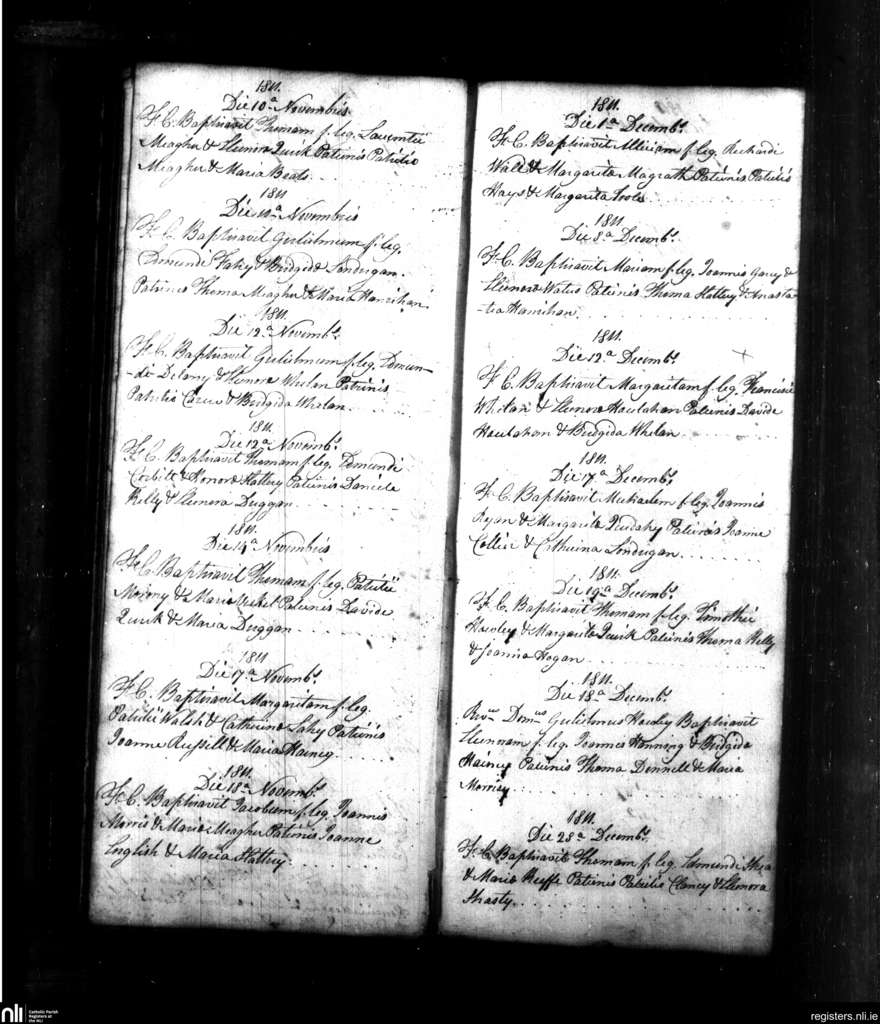 1811.
Die 10a Novembris
F. C. Baptisavit Thomam f. leg. Laurentii
Meagher & Elenora Quirk Patrinis Patritio
Meagher & Maria
1811
Die Novembris
F. C. Baptisavit Gulielmum f. leg.
Edmundi Fahy & Bridgida Londergan.
Patrinis Thoma Meagher & Maria Hanrihan.
1811.
Die 12a Novembs.
F. C. Baptisavit Gulielmum f. leg. Edmun-
-di Delany & Elenora Whelan Patrinis
Patritio & Bridgida Whelan.
1811.
Die 12a Novembs.
F. C. Baptisavit Thomam f. leg. Edmundi
Corbitt & Honora Slattery Patrinis Daniele
Kelly & Elenora Duggan.
1811.
Die 14a Novembris
F. C. Baptisavit Thomam f. leg. Patritii
Morony & Maria Patrinis Davide
Quirk & Maria Duggan
1811
Die 17a Novembs.
F. C. Baptisavit Margaritam f. leg.
Patritii Walsh & Catherina Lahy Patrinis
Joanne Russell & Maria
1811.
Die 18a Novembs.
F. C. Baptisavit Jacobum f. leg. Joannis
Morris & Maria Meagher Patrinis Joanne
English & Maria Slattery.
1811.
Die 1a Decembs.
F. C. Baptisavit f. leg. Richardi
Wall & Margarita Magrath Patrinis Patritio
Hays & Margarita Toole
1811
Die 8a Decembs.
F. C. Baptisavit Mariam f. leg. Joannis &
Elenora Patrinis Thoma Slattery & Anasta-
-tia Hanrihan.
1811.
Die 12a Decembs.
F. C. Baptisavit Margaritam f. leg. Francisci
Whelan & Elenora Houlahan Patrinis Davide
Houlahan & Bridgida Whelan
1811.
Die 17a Decembs.
F. C. Baptisavit Michaelem f. leg. Joannis
Ryan & Margarita Patrinis Joanne
Collier & Catherina Londrigan.
1811.
Die 19a Decembs.
F. C. Baptisavit Thomam f. leg. Timothei
Hawley & Margarita Quirk Patrinis Thoma Kelly
& Joanna Hogan
1811.
Die 18a Decembs.
Domus Gulielmus Hawley Baptisavit
f. leg. Joannes & Bridgida
Patrinis Thoma Dennell & Maria
Morrisy
1811.
Die 28a Decembs.
F. C. Baptisavit Thomam f. leg. Edmundi Shea
& Maria Keeffe Patrinis Patritio Clancy & Elenora
nli
Catholic Parish
Registers at
the NLI
registers.nli.ie